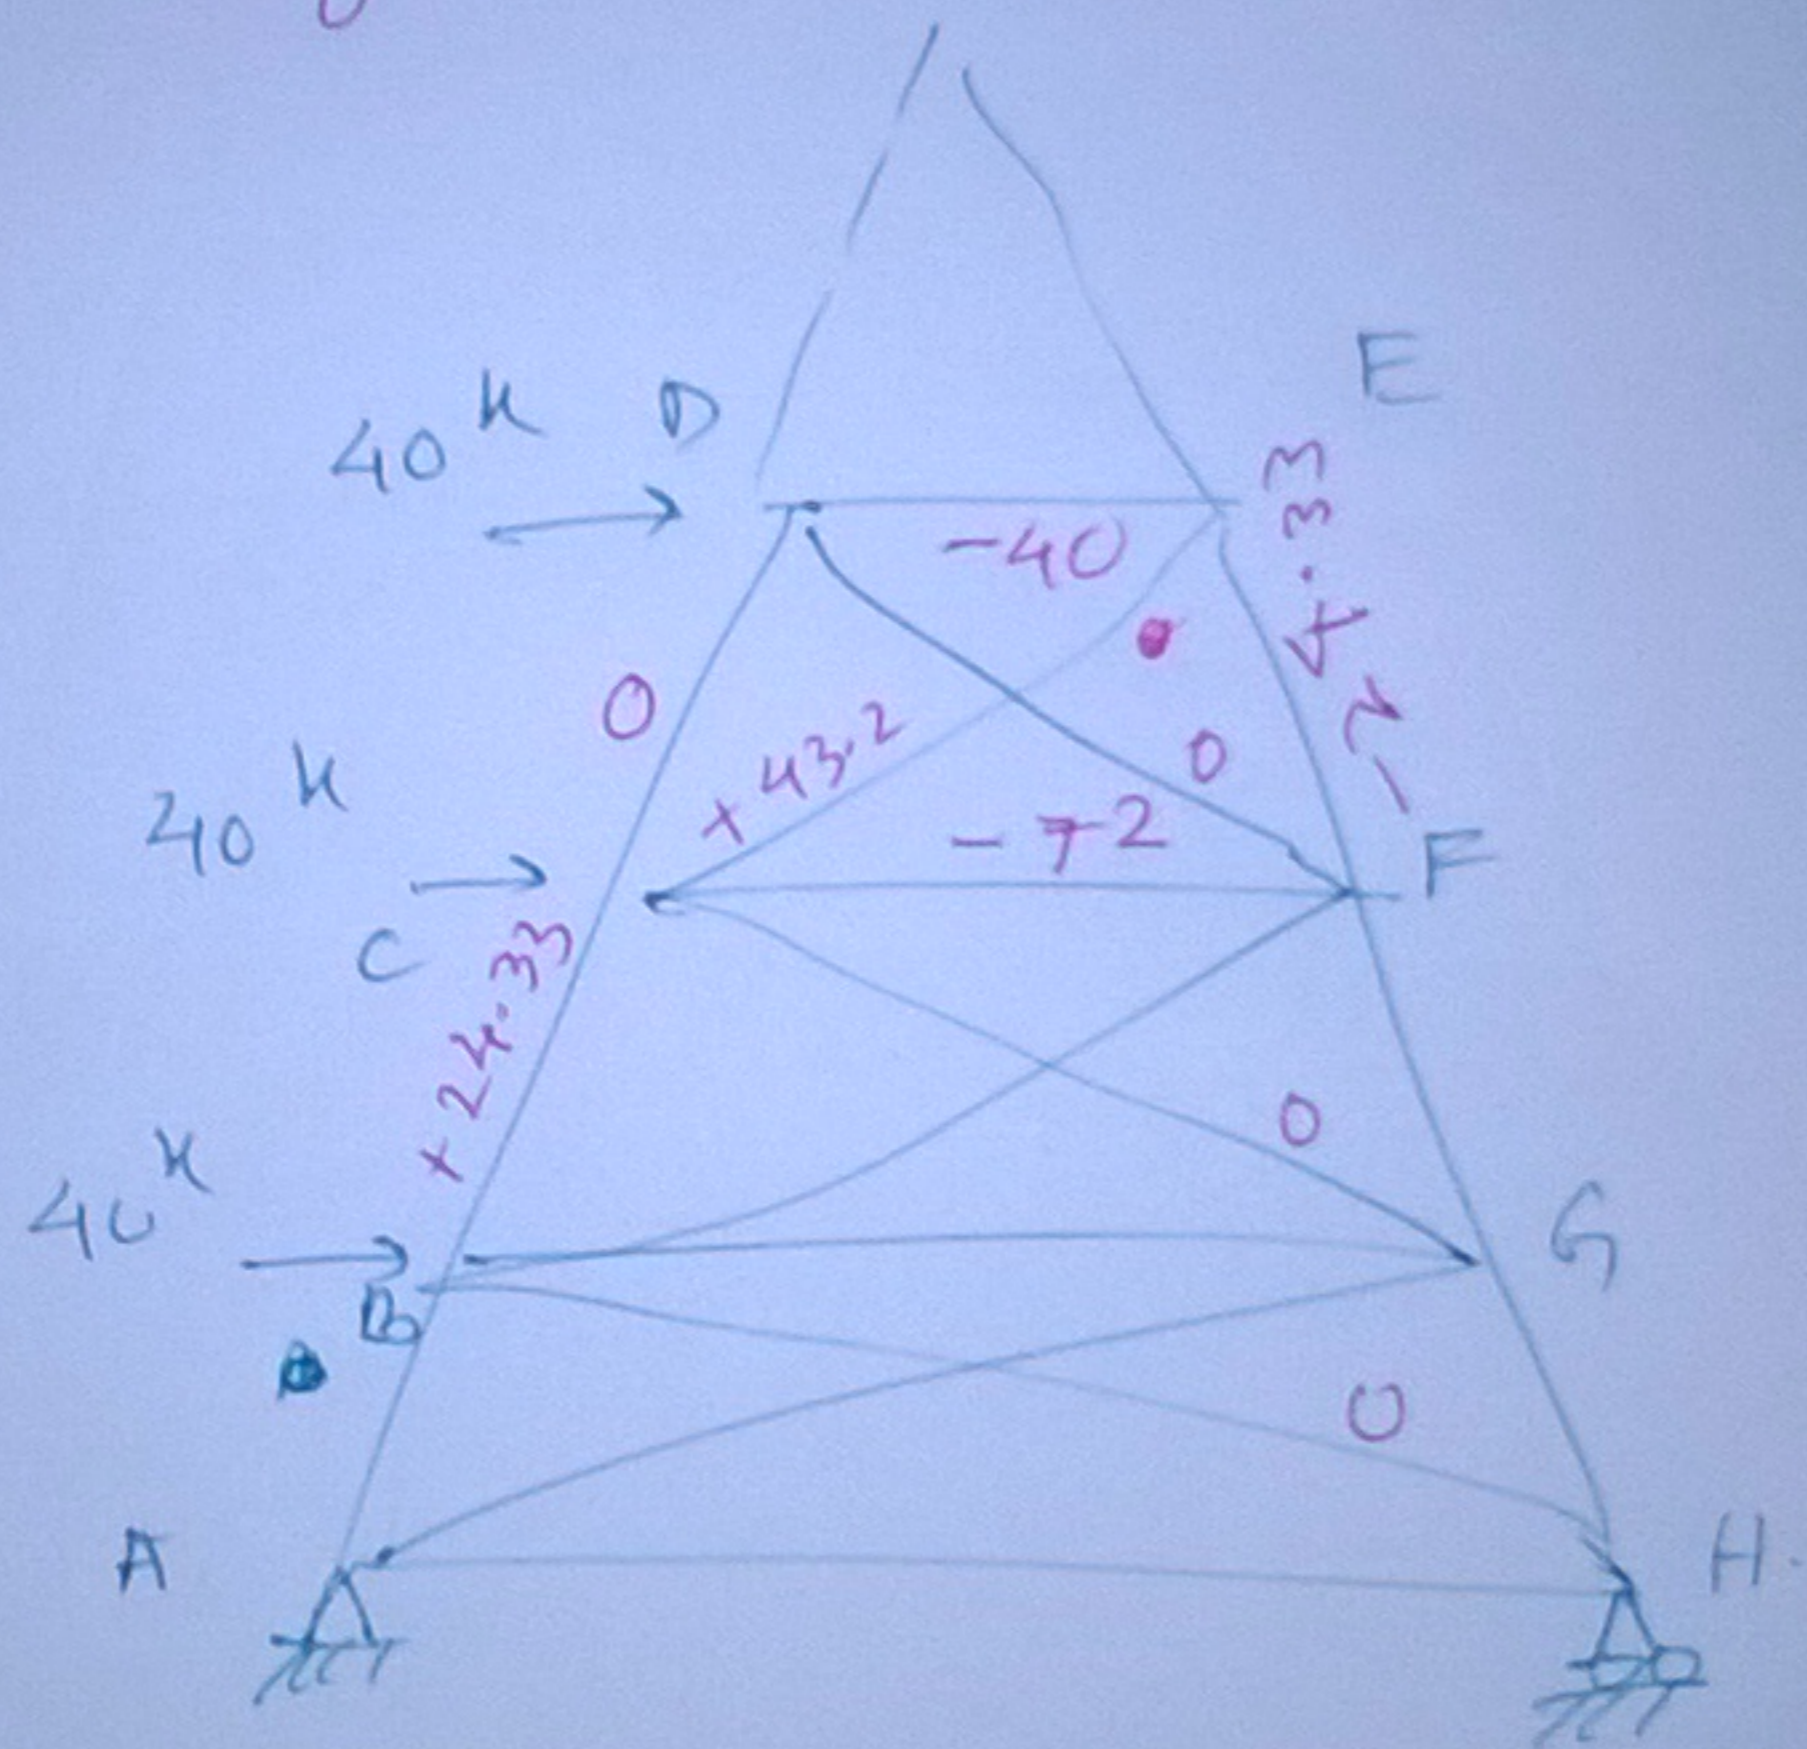 E
40 k D
-40
-24.33
0
+43.2
0
40 k
-72
F
C
+24.33
0
40 k
G
B
0
A
H.